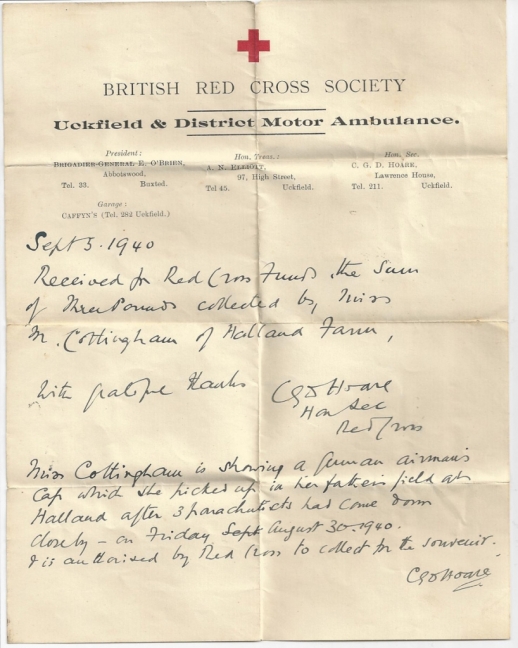 BRITISH RED CROSS SOCIETY
Uckfield & District Motor Ambulance.
President: Hon. Treas.: Hon. Sec.
BRIGADIER-GENERAL E. O'BRIEN, A. N. ELLIOTT, C. G. D. HOARE,
Abbotswood, 97, High Street, Lawrence House,
Tel. 33. Buxted. Tel 45. Uckfield. Tel. 211. Uckfield.
Garage:
CAFFYN'S (Tel. 282 Uckfield.)
Sept 5. 1940
Received for Red Cross Funds the Sum
of Three Pounds collected by Miss
M. Cottingham of Halland Farm,
With grateful Thanks CGDHoare
Hon Sec
Red Cross
Miss Cottingham is showing a German airman's
Cap which she picked up in her father's field at
Halland after 3 parachutists had come down
closeby - on Friday Sept August 30. 1940.
& is authorised by Red Cross to collect for the souvenir.
CGDHoare